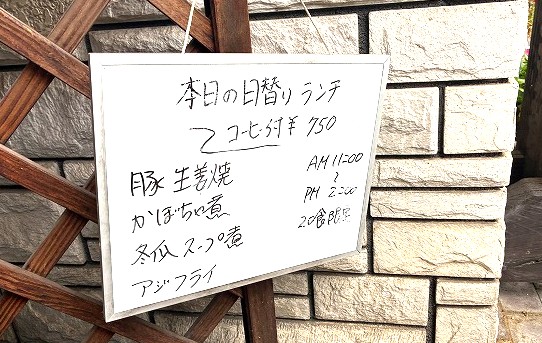 本日の日替り ランチ
コーヒー付 ¥ 750
豚 生姜焼
かぼちゃ煮
冬瓜 スープ煮
アジフライ
AM 11:00
〜
PM 2:00
20食限定